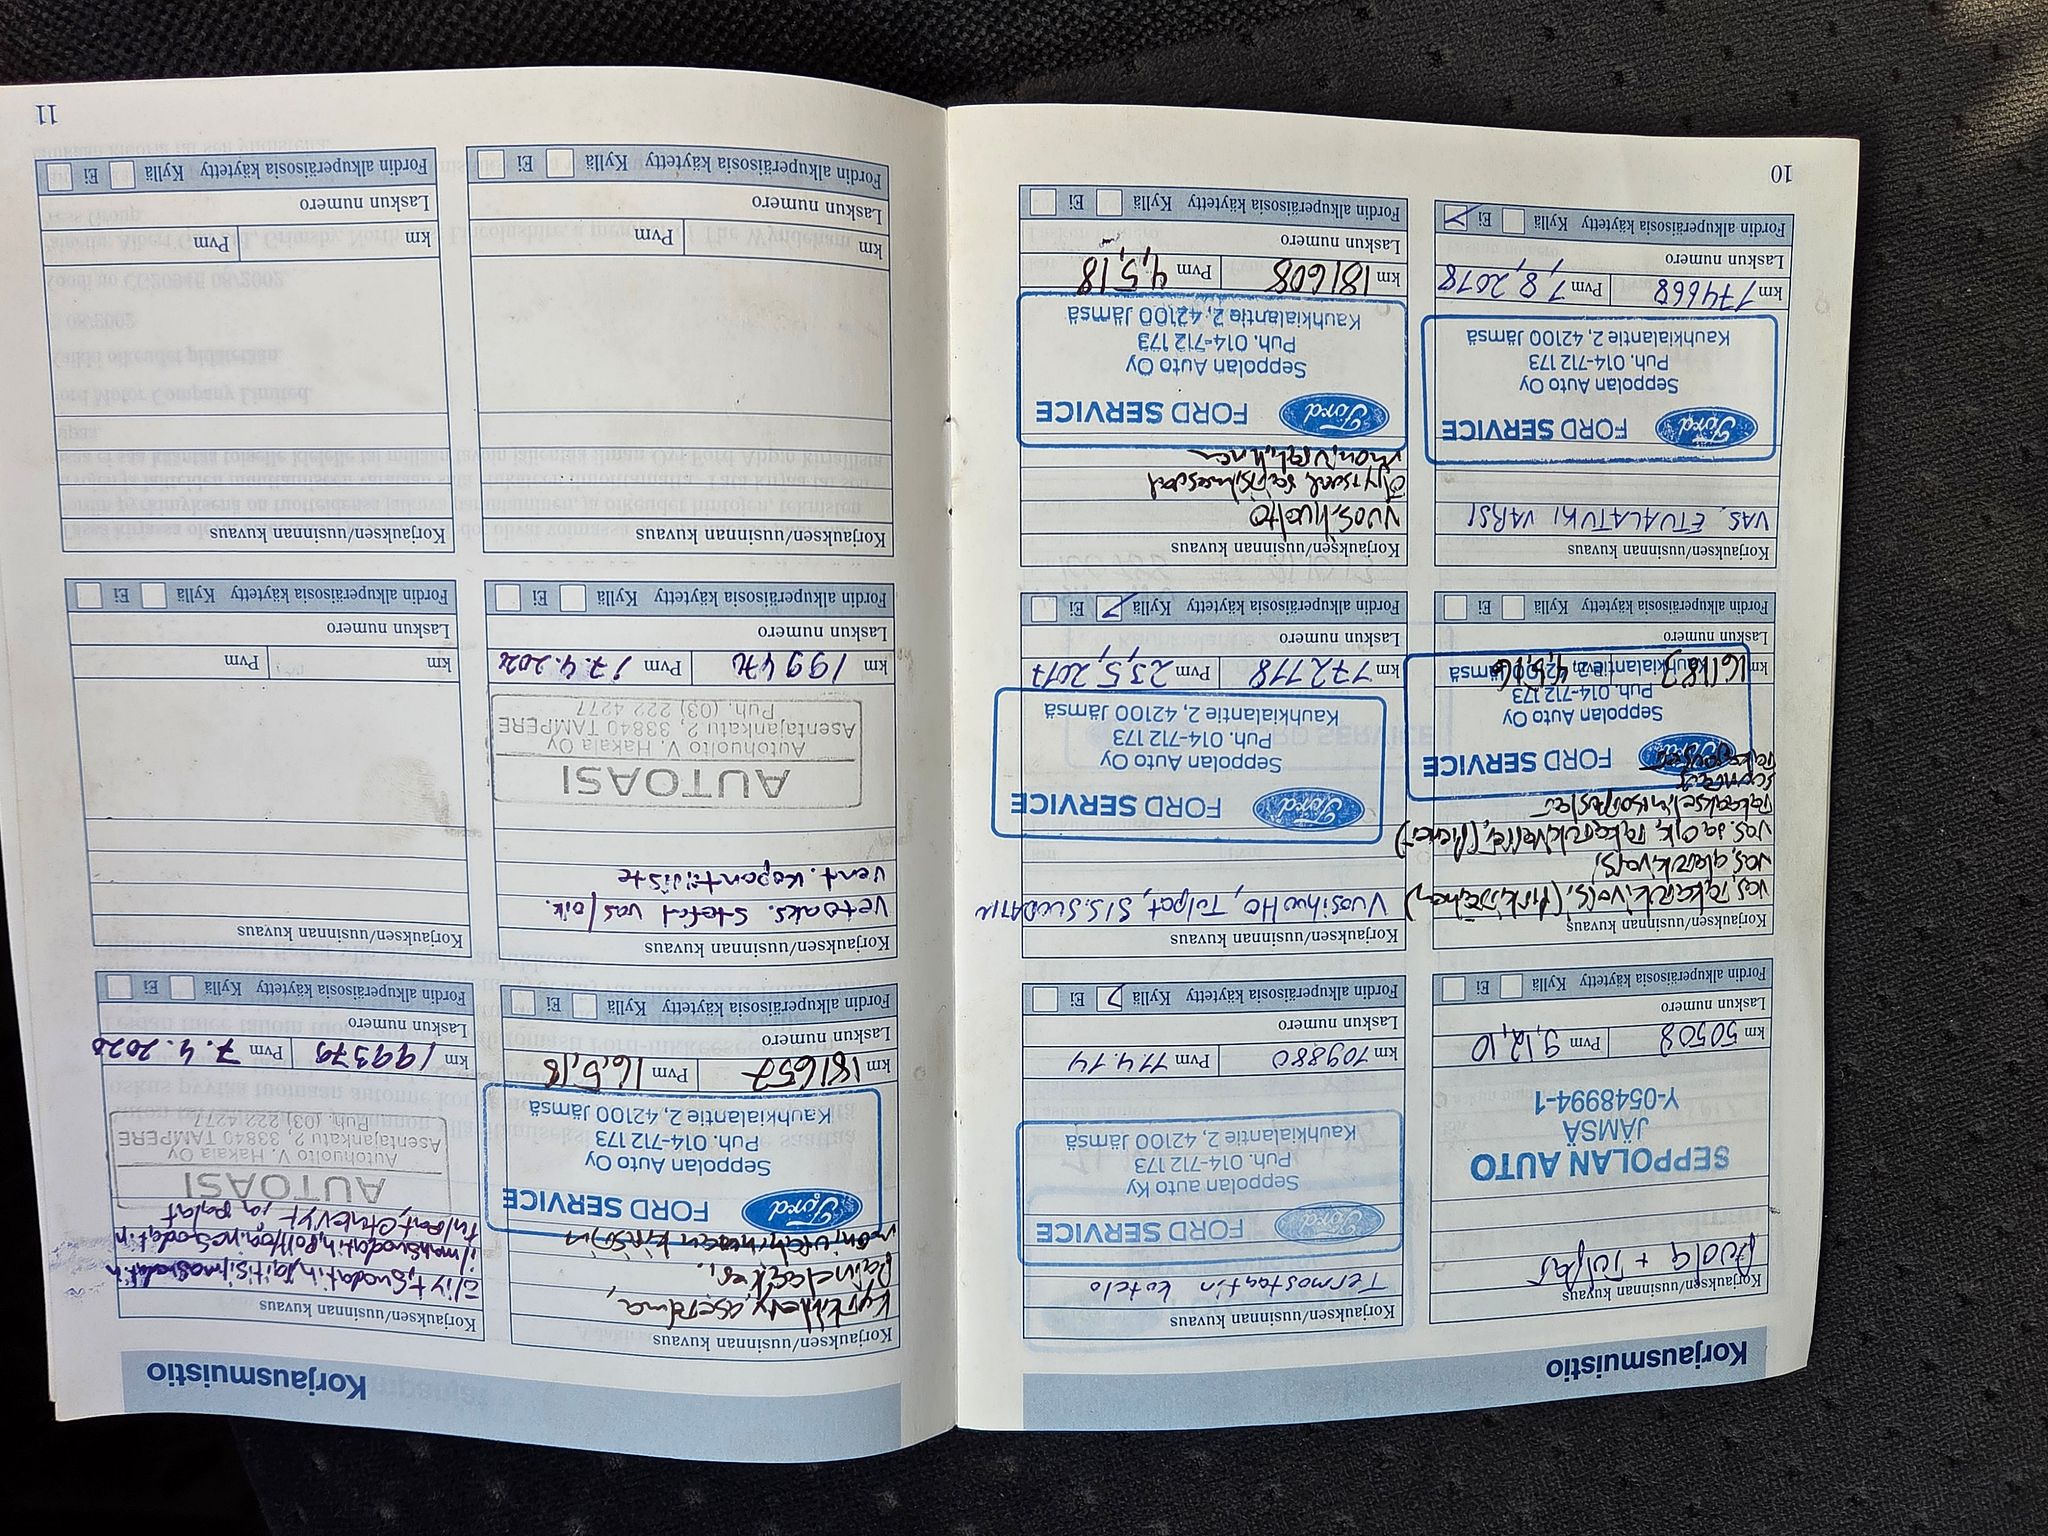 Korjausmuistio
Korjauksen/uusinnan kuvaus
Seppolan Auto
JÄMSÄ
Y-0548994-1
km 50508 Pvm 9,12,10
Laskun numero
Fordin alkuperäisosia käytetty Kyllä Ei
Korjauksen/uusinnan kuvaus
Termostaatin kotelo
Ford FORD SERVICE
Seppolan auto Ky
Puh. 014-712 173
Kauhkialantie 2, 42100 Jämsä
km 109880 Pvm 11.4.14
Laskun numero
Fordin alkuperäisosia käytetty Kyllä Ei
Korjauksen/uusinnan kuvaus
Ford FORD SERVICE
Seppolan Auto Oy
Puh. 014-712 173
Kauhkialantie 2, 42100 Jämsä
km 161183 Pvm
Laskun numero
Fordin alkuperäisosia käytetty Kyllä Ei
Korjauksen/uusinnan kuvaus
Vuosihuolto, Tulpat, SIS.SUODATIN
Ford FORD SERVICE
Seppolan Auto Oy
Puh. 014-712 173
Kauhkialantie 2, 42100 Jämsä
km 172778 Pvm 23,5,2017
Laskun numero
Fordin alkuperäisosia käytetty Kyllä Ei
Korjauksen/uusinnan kuvaus
VAS. ETUALATUKI VARSI
Ford FORD SERVICE
Seppolan Auto Oy
Puh. 014-712 173
Kauhkialantie 2, 42100 Jämsä
km 174668 Pvm 1,8,2018
Laskun numero
Fordin alkuperäisosia käytetty Kyllä Ei
Korjauksen/uusinnan kuvaus
vuos.huolto
Ford FORD SERVICE
Seppolan Auto Oy
Puh. 014-712 173
Kauhkialantie 2, 42100 Jämsä
km 181608 Pvm 4,5,18
Laskun numero
Fordin alkuperäisosia käytetty Kyllä Ei
10
Korjausmuistio
Korjauksen/uusinnan kuvaus
Ford FORD SERVICE
Seppolan Auto Oy
Puh. 014-712 173
Kauhkialantie 2, 42100 Jämsä
km 181657 Pvm 16,5,18
Laskun numero
Fordin alkuperäisosia käytetty Kyllä Ei
Korjauksen/uusinnan kuvaus
öljyt, suodatin, raitisilmasuodatin
ilmansuodatin, polttoainesuodatin
tulpat, etulevyt ja palat
AUTOASI
Autohuolto V. Hakala Oy
Asentajankatu 2, 33840 TAMPERE
Puh. (03) 222 4277
km 199379 Pvm 7.4.2020
Laskun numero
Fordin alkuperäisosia käytetty Kyllä Ei
Korjauksen/uusinnan kuvaus
vetoaks. stefat vas/oik.
AUTOASI
Autohuolto V. Hakala Oy
Asentajankatu 2, 33840 TAMPERE
Puh. (03) 222 4277
km 19947 Pvm 17.4.2020
Laskun numero
Fordin alkuperäisosia käytetty Kyllä Ei
Korjauksen/uusinnan kuvaus
km Pvm
Laskun numero
Fordin alkuperäisosia käytetty Kyllä Ei
Korjauksen/uusinnan kuvaus
km Pvm
Laskun numero
Fordin alkuperäisosia käytetty Kyllä Ei
Korjauksen/uusinnan kuvaus
km Pvm
Laskun numero
Fordin alkuperäisosia käytetty Kyllä Ei
11